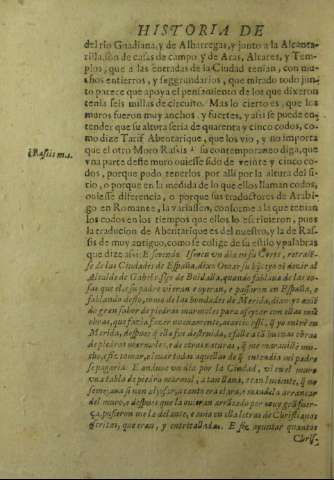 HISTORIA DE
del rio Guadiana, y de Albarregas, y junto a la Alcanta-
rilla, son de casas de campo y de Aras, Altares, y Tem-
plos, que a las entradas de la Ciudad tenian, con mu-
chos entierros, y seggrundarios, que mirado todo jun-
to parece que apoya el pensamiento de los que dixeron
tenia seis millas de circuito. Mas lo cierto es, que los
muros fueron muy anchos y fuertes, y assi se puede en-
tender que su altura seria de quarenta y cinco codos, co-
mo dize Tarif Abentarique, que los vio, y no importa
1 Rasis ma.
que el otro Moro Rasis 1 su contemporaneo diga, que
vna parte deste muro ouiesse sido de veinte y cinco co-
dos, porque podo tenerlos por alli por la altura del si-
tio, o porque en la medida de lo que ellos llaman codos,
ouiesse diferencia, o porque sus traductores de Arabi-
go en Romance, la variassen, conforme a la que tenian
los codos en los tiempos que ellos lo escriuieron, pues
la traducion de Abentarique es del nuestro, y la de Ra-
sis de muy antiguo, como se colige de su estilo y palabras
que dize assi: E seyendo
en su Corte,
de las Ciudades de España,
Alcalde
sas que el e su padre vieran e oyeran, e passaron en España, e
fablando desto, vino de las bondades de Merida,
de gran sabor de piedras marmoles para
obras, que fazia,
Merida, despues que ella fue destruida, e falle
piedras marmoles, e de otras naturas, que me marauille mu-
cho, e fiz tomar, e leuar todas aquellas de que entendia mi padre
se pagaria. E andaua vn dia por la Ciudad, vi en el muro
vna tabla de piedra marmol, a tan llana, e tan luziente, que no
semejaua si non aljofar, a tanto era clara, e mandela arrancar
del muro, e despues que la ouieron arrancado por muy gran fuer-
ça, pusieron me la delante, e auia en ella letras de Christianos
escritas, que eran, y entretalladas. E fiz ayuntar quantos
Chris-